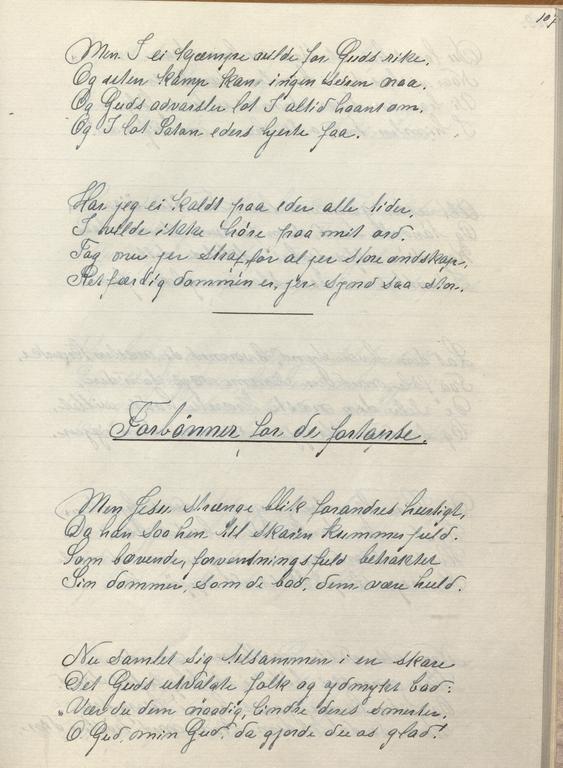 107
Men I ei kjæmpe vilde for Guds rike,
Og uten kamp kan ingen seiren naa.
Og Guds advarsler lot I altid haant om,
Og I lot Satan eders hjerte faa.
Har jeg ei kaldt paa eder alle tider,
I vilde ikke höre paa mit ord.
Tag nu jer straf for al jer store ondskap,
Retfærdig dommen er, jer synd saa stor.
Forbönner for de fortapte.
Men Jesu strænge blik forandres hurtigt,
Da han saa hen til skaren kummerfuld.
Som bævende, forventningsfuld betrakter
Sin dommer, som de bad, dem være huld.
Nu samlet sig tilsammen i en skare
Det Guds utvalgte folk og ydmykt bad:
"Vær du dem naadig, lindre deres smerter,
O Gud, min Gud! da gjorde du os glad!